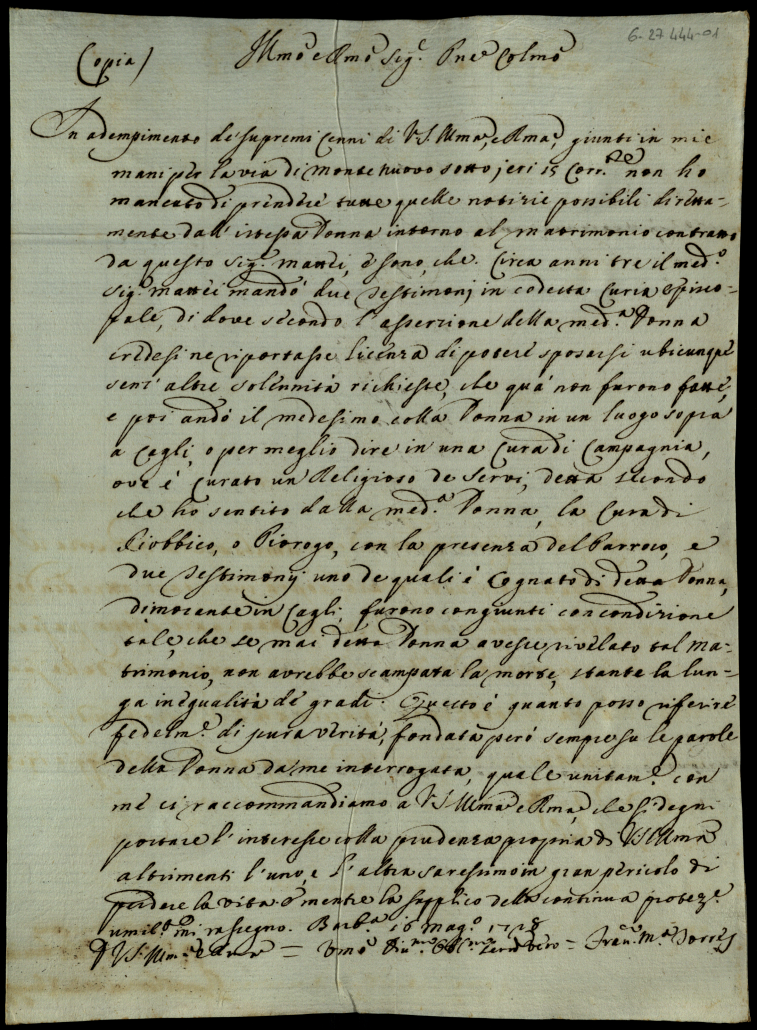 6-27 444-01
Copia) Illmo e Rmo Sig.r Pne Colmo
In adempimento de supremi Cenni di V.S. Illma, e Rma, giunti in mie
mani per la via di Monte nuovo sotto jeri 15 Corr.te non ho
mancato di prendere tutte quelle notizie possibili diretta-
mente dall' istessa Donna intorno al matrimonio contratto
da questo Sig.r Mattei, e sono, che Circa anni tre il med.o
Sig.r Mattei mandò due Testimonj in codesta Curia Episco-
pale, di dove secondo l'asserzione della med.a Donna
credesi ne riportasse licenza di potere sposarsi ubicunque
senz' altre solennità richieste, che quà non furono fatte,
e poi andò il medesimo colla Donna in un luogo sopra
a Cagli, o per meglio dire in una Cura di Campagnia,
ove è Curato un Religioso de Servi, detta secondo
che ho sentito dalla med.a Donna, la Cura di
Piobbico, o Piorogo, con la presenza del Parroco, e
due Testimonj uno de quali è Cognato di detta Donna,
dimorante in Cagli, furono congiunti con condizione
tale, che se mai detta Donna avesse rivelato tal ma-
trimonio, non avrebbe scampata la morte, stante la lun-
ga inequalità de gradi. Questo è quanto posso riferire
fedelm.e di pura verità, fondata però sempre su le parole
della Donna da me interrogata, quale unitam.e con
me ci raccommandiamo a V.S. Illma e Rma, che si degni
portare l'interesse colla prudenza propria di V.S. Illma
altrimenti l'uno, e l'altra saressimo in gran pericolo di
perdere la vita. E mentre la supplico della continua protez.e
umilm.e mi rassegno. Barb.a 16 Mag.o
D V.S. Illma e Rma = Vmo Obl.mo Serv.re vero = Fran.co M.a Torres